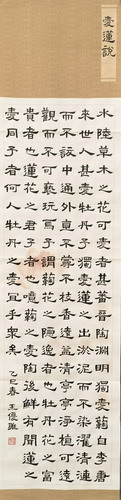 愛蓮說
水陸草木之花可愛者甚蕃晉陶淵明獨愛菊自李唐
来世人甚愛牡丹予獨愛蓮之出淤泥而不染濯清漣
而不妖中通外直不蔓不枝香遠益清亭亭淨植可遠
觀而不可褻玩焉予謂菊花之隱逸者也牡丹花之富
貴者也蓮花之君子者也噫菊之愛陶後鮮有聞蓮之
愛同予者何人牡丹之愛宜乎眾矣 乙巳春 王